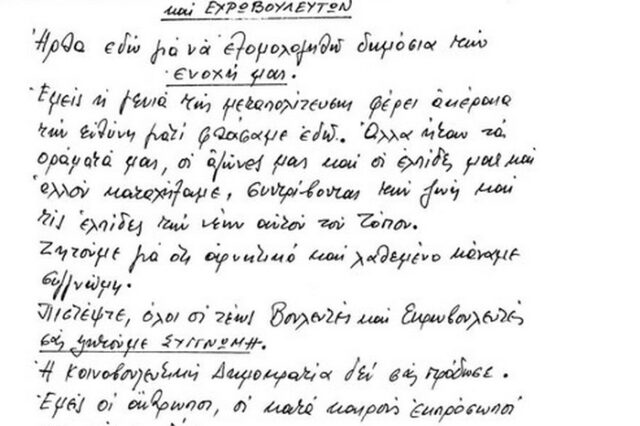 καὶ ΕΥΡΩΒΟΥΛΕΥΤΩΝ
Ἦρθα ἐδῶ γιὰ νὰ ἐξομολογηθῶ δημόσια τὴν
ἐνοχή μας.
Ἐμεῖς ἡ γενιὰ τῆς μεταπολίτευσης φέρει ἀκέραια
τὴν εὐθύνη γιατὶ φτάσαμε ἐδῶ. Ἄλλα ἦταν τὰ
ὁράματά μας, οἱ ἀγῶνες μας καὶ οἱ ἐλπίδες μας καὶ
ἀλλοῦ καταλήξαμε, συντρίβοντας τὴν ζωὴ καὶ
τὶς ἐλπίδες τῶν νέων αὐτοῦ τοῦ Τόπου.
Ζητοῦμε γιὰ ὅτι ἀρνητικὸ καὶ λαθεμένο κάναμε
συγγνώμη.
Πιστέψτε, ὅλοι οἱ τέως Βουλευτὲς καὶ Ευρωβουλευτὲς
σᾶς ζητοῦμε ΣΥΓΓΝΩΜΗ.
Ἡ Κοινοβουλευτικὴ Δημοκρατία δὲν σᾶς πρόδωσε.
Ἐμεῖς οἱ ἄνθρωποι, οἱ κατὰ καιροὺς ἐκπρόσωποί